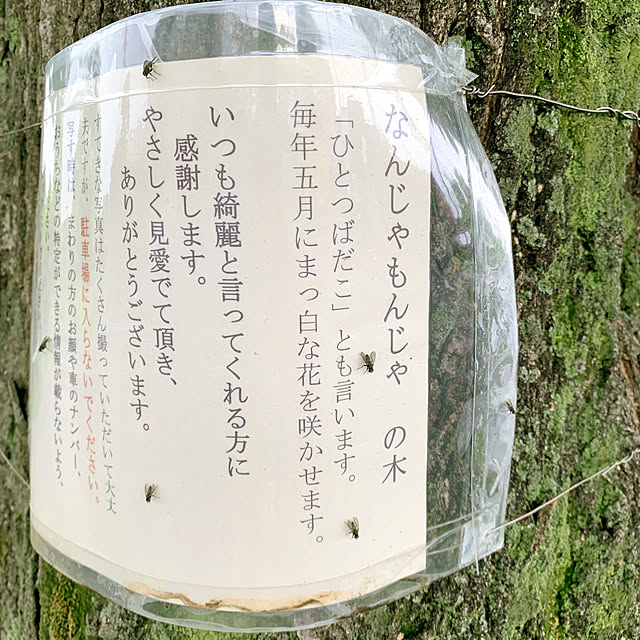 なんじゃもんじゃ　の木
「ひとつばだこ」とも言います。
毎年五月にまっ白な花を咲かせます。
いつも綺麗と言ってくれる方に
感謝します。
やさしく見愛でて頂き、
ありがとうございます。
すてきな写真はたくさん撮っていただいて大丈
夫ですが、駐車場に入らないでください。
写す時は、まわりの方のお顔や車のナンバー、
おうちなどの特定ができる情報が載らないよう、